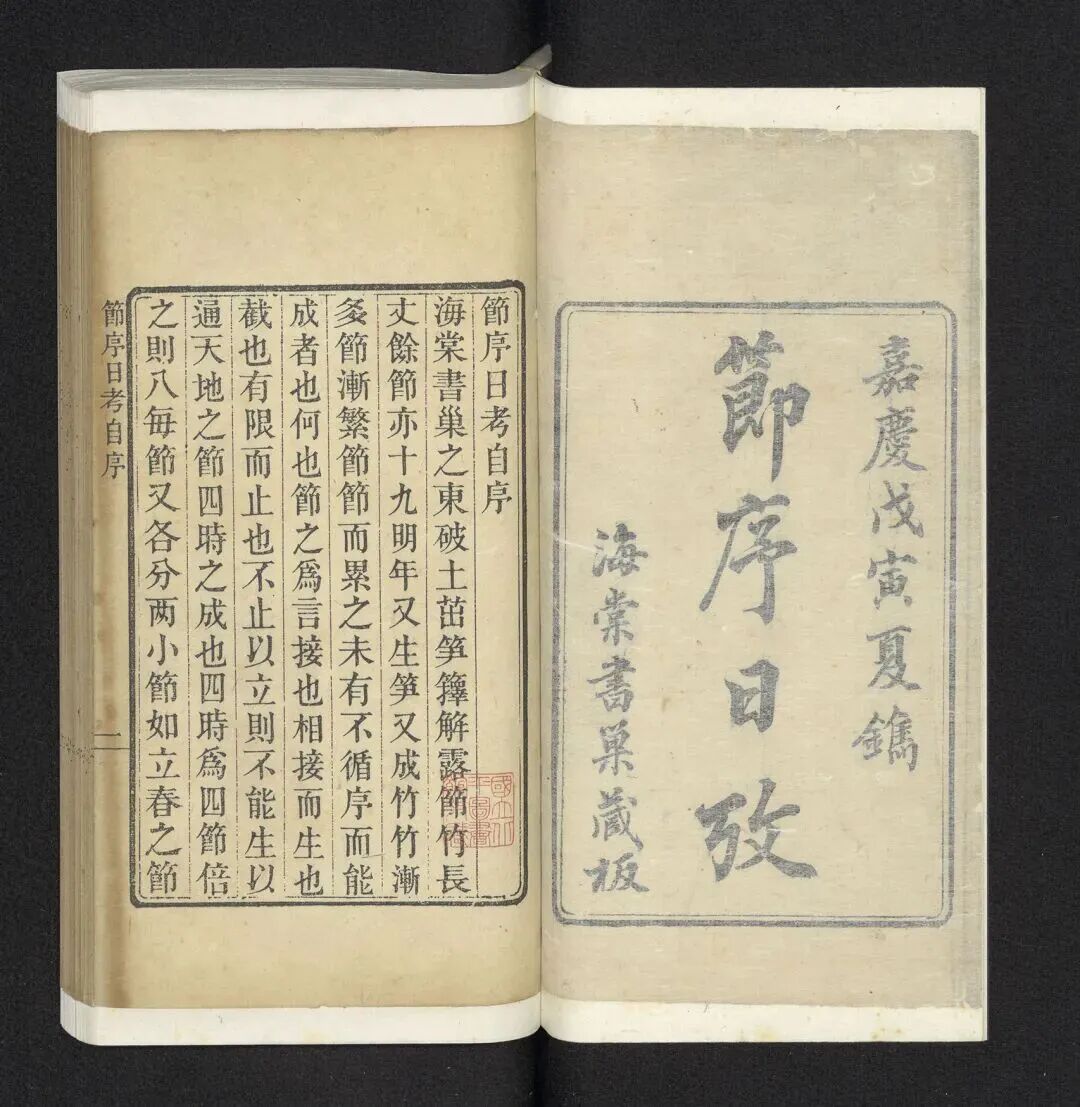 嘉慶戊寅夏鐫
節序日攷
海棠書巢藏板
節序日考自序
海棠書巢之東破土茁笋籜解露節竹長
丈餘節亦十九明年又生笋又成竹竹漸
夛節漸繁節節而累之未有不循序而能
成者也何也節之爲言接也相接而生也
截也有限而止也不止以立則不能生以
通天地之節四時之成也四時爲四節倍
之則八毎節又各分两小節如立春之節
節序日考自序
一
國立北
平圖書